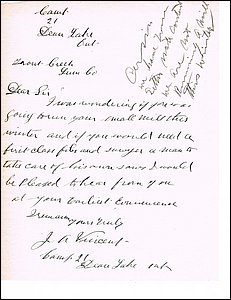 Camp
21
Dean Lake
Ont.
Trout Creek
Lum Co
Dear Sir
I was wondering if you are
going to run your small mill this
winter and if you would need a
first class filer and sawyer a man to
take care of his own saws I would
be pleased to hear from you
at your Earliest Convenience
I remain
yours truly
J. A. Vincent
Camp 21
Dean Lake Ont
we have your
letter
we are not
running a mill
this winter